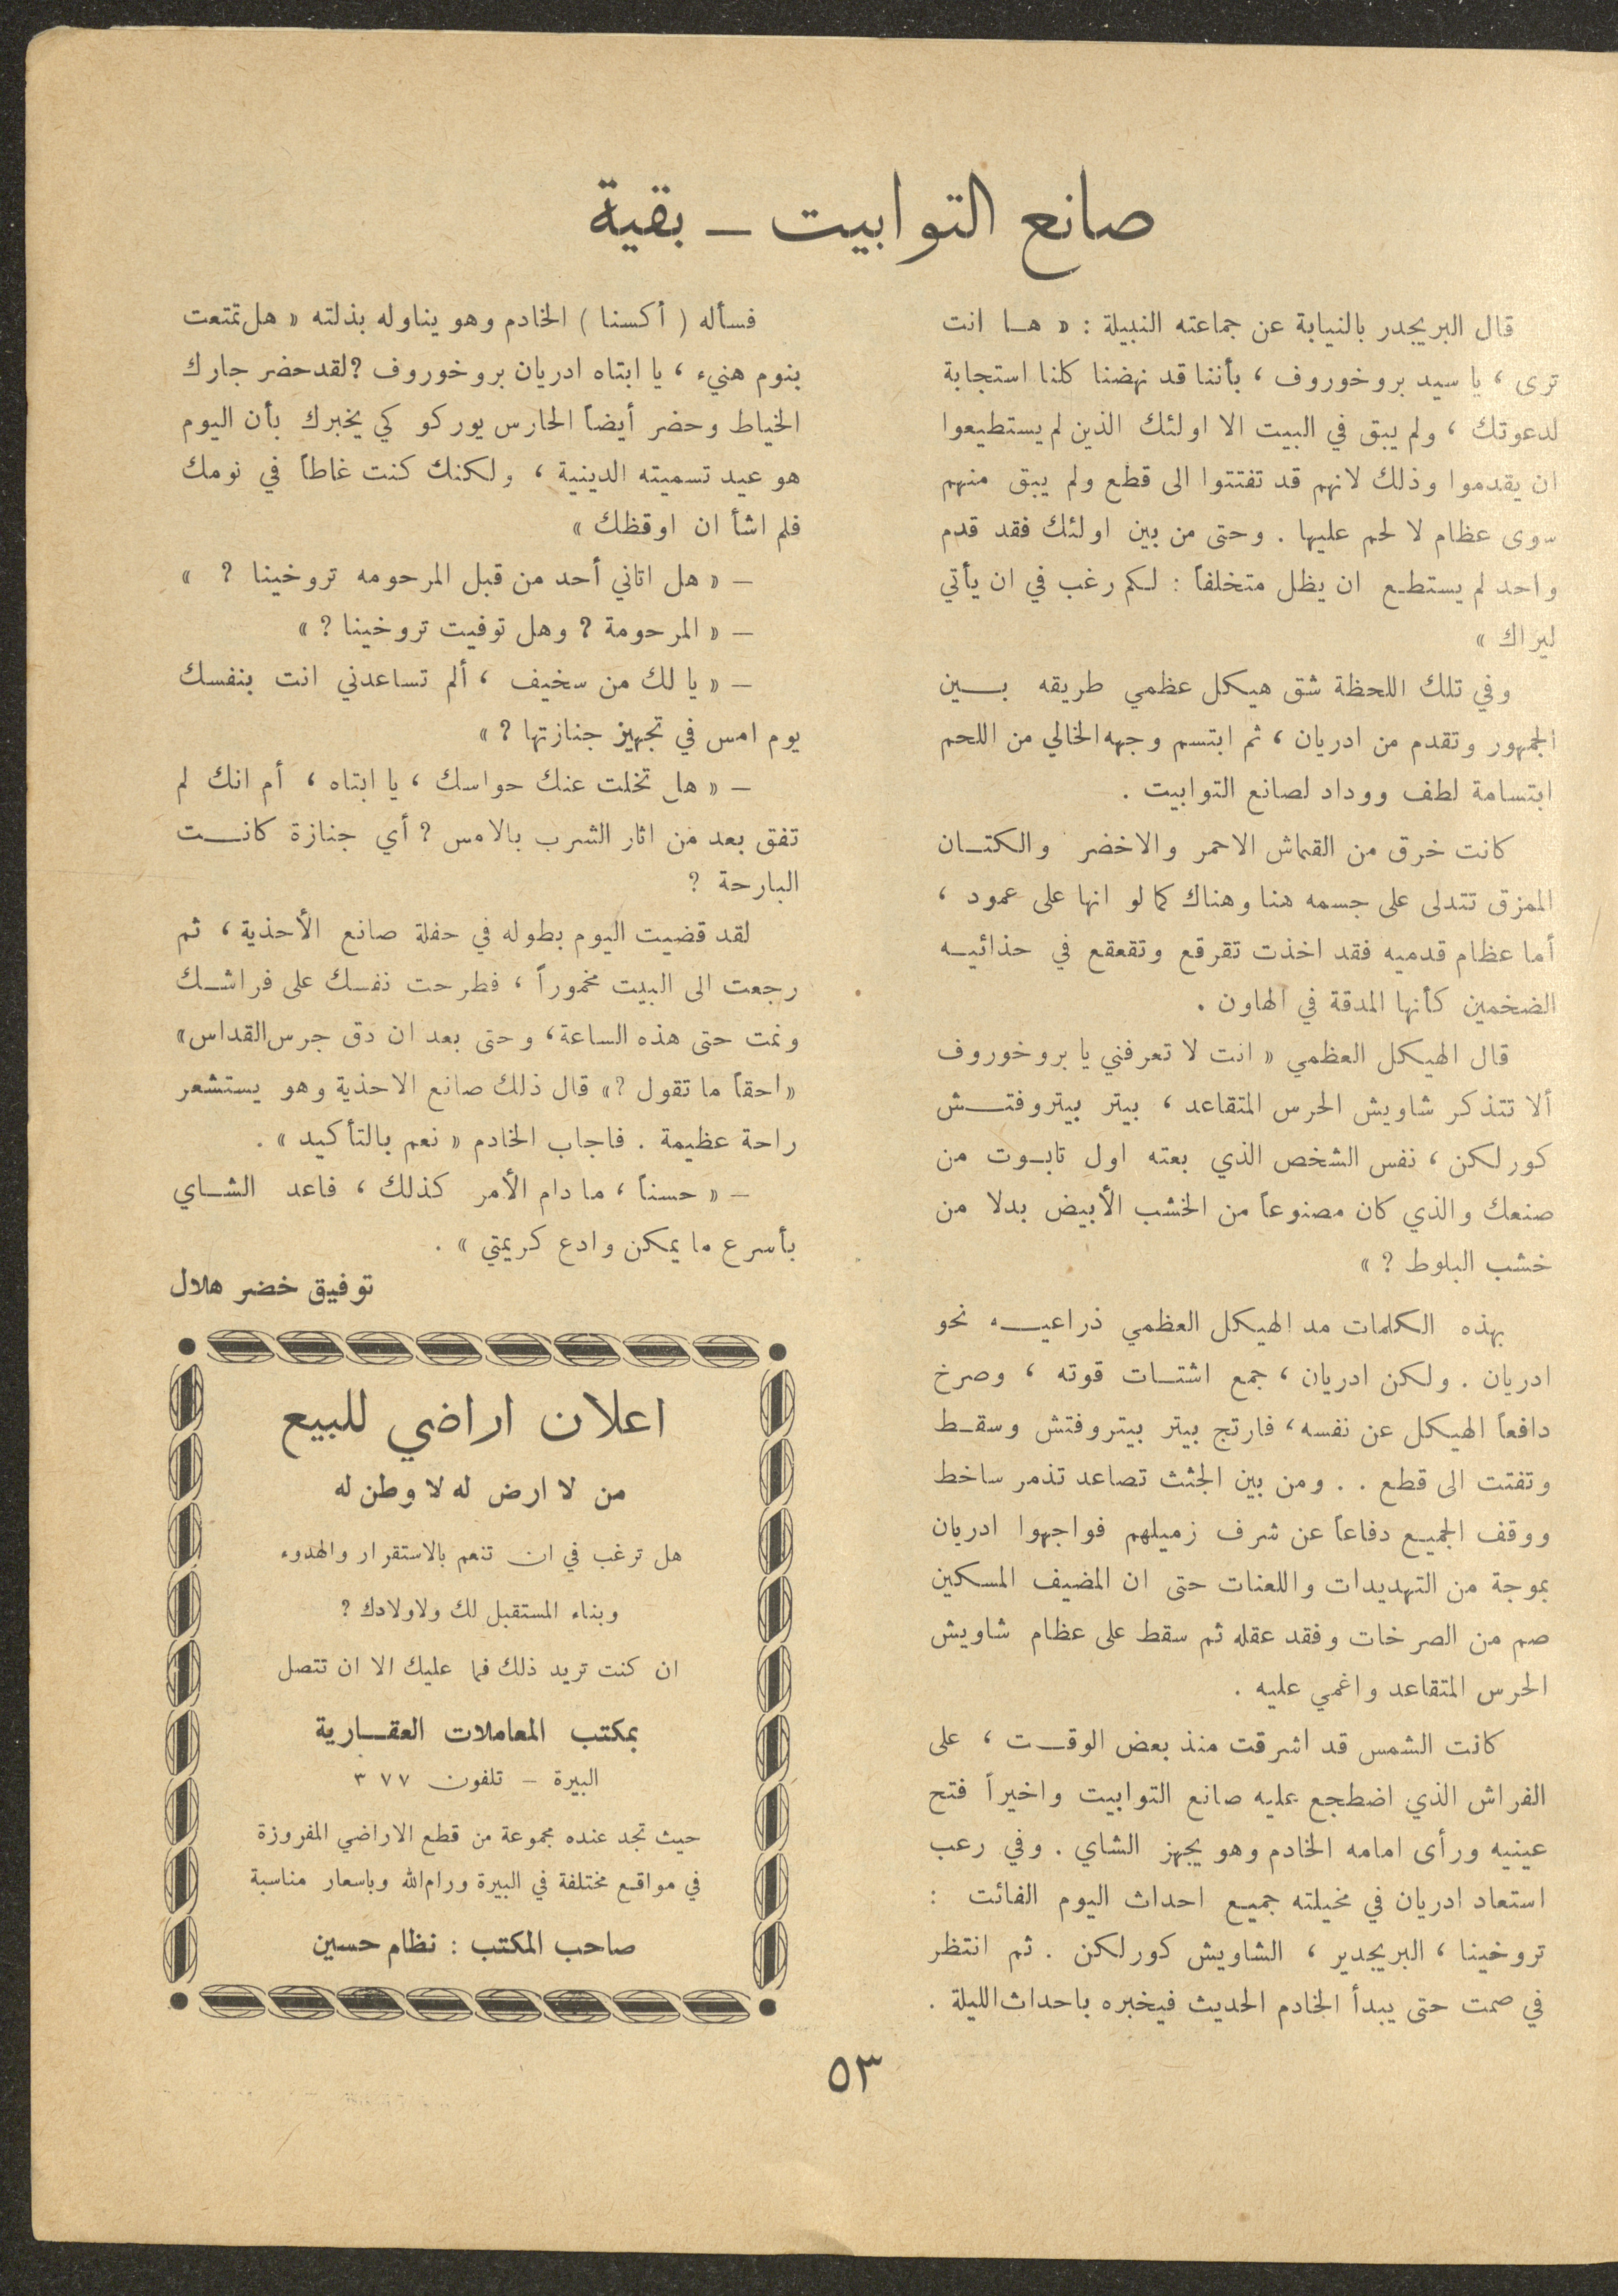 صانع التوابيت – بقية
قال البريجدر بالنيابة عن جماعته النبيلة : « ها انت
ترى ، يا سيد بروخوروف ، بأننا قد نهضنا كلنا استجابة
لدعوتك ، ولم يبق في البيت الا اولئك الذين لم يستطيعوا
ان يقدموا وذلك لانهم قد تفتتوا الى قطع ولم يبق منهم
سوى عظام لا لحم عليها . وحتى من بين اولئك فقد قدم
واحد لم يستطع ان يظل متخلفاً : لكم رغب في ان يأتي
ليراك »
وفي تلك اللحظة شق هيكل عظمي طريقه بين
الجمهور وتقدم من ادريان ، ثم ابتسم وجهه الخالي من اللحم
ابتسامة لطف ووداد لصانع التوابيت .
كانت خرق من القماش الاحمر والاخضر والكتان
الممزق تتدلى على جسمه هنا وهناك كما لو انها على عمود ،
أما عظام قدميه فقد اخذت تقرقع وتقعقع في حذائيه
الضخمين كأنها المدقة في الهاون .
قال الهيكل العظمي « انت لا تعرفني يا بروخوروف
ألا تتذكر شاويش الحرس المتقاعد ، بيتر بيتروفتش
كورلكن ، نفس الشخص الذي بعته اول تابوت من
صنعك والذي كان مصنوعاً من الخشب الأبيض بدلا من
خشب البلوط ? »
بهذه الكلمات مد الهيكل العظمي ذراعيه نحو
ادريان . ولكن ادريان ، جمع اشتات قوته ، وصرخ
دافعاً الهيكل عن نفسه ، فارتج بيتر بيتروفتش وسقط
وتفتت الى قطع . . ومن بين الجثث تصاعد تذمر ساخط
ووقف الجميع دفاعاً عن شرف زميلهم فواجهوا ادريان
بموجة من التهديدات واللعنات حتى ان المضيف المسكين
صم من الصرخات وفقد عقله ثم سقط على عظام شاويش
الحرس المتقاعد واغمي عليه .
كانت الشمس قد اشرقت منذ بعض الوقت ، على
الفراش الذي اضطجع عليه صانع التوابيت واخيراً فتح
عينيه ورأى امامه الخادم وهو يجهز الشاي . وفي رعب
استعاد ادريان في مخيلته جميع احداث اليوم الفائت :
تروخينا ، البريجدير ، الشاويش كورلكن . ثم انتظر
في صمت حتى يبدأ الخادم الحديث فيخبره باحداث الليلة .
فسأله ( أكسنا ) الخادم وهو يناوله بذلته « هل تمتعت
بنوم هنيء ، يا ابتاه ادريان بروخوروف ? لقد حضر جارك
الخياط وحضر أيضاً الحارس يوركو كي يخبرك بأن اليوم
هو عيد تسميته الدينية ، ولكنك كنت غاطاً في نومك
فلم اشأ ان اوقظك »
– « هل اتاني أحد من قبل المرحومه تروخينا ? »
– « المرحومة ? وهل توفيت تروخينا ? »
– « يا لك من سخيف ، ألم تساعدني انت بنفسك
يوم امس في تجهيز جنازتها ? »
– « هل تخلت عنك حواسك ، يا ابتاه ، أم انك لم
تفق بعد من اثار الشرب بالامس ? أي جنازة كانت
البارحة ?
لقد قضيت اليوم بطوله في حفلة صانع الأحذية ، ثم
رجعت الى البيت مخموراً ، فطرحت نفسك على فراشك
ونمت حتى هذه الساعة ، وحتى بعد ان دق جرس القداس »
« احقاً ما تقول ? » قال ذلك صانع الاحذية وهو يستشعر
راحة عظيمة . فاجاب الخادم « نعم بالتأكيد » .
– « حسناً ، ما دام الأمر كذلك ، فاعد الشاي
بأسرع ما يمكن وادع كريمتي » .
توفيق خضر هلال
اعلان اراضي للبيع
من لا ارض له لا وطن له
هل ترغب في ان تنعم بالاستقرار والهدوء
وبناء المستقبل لك ولاولادك ?
ان كنت تريد ذلك فما عليك الا ان تتصل
بمكتب المعاملات العقارية
البيرة – تلفون ٣٧٧
حيث تجد عنده مجموعة من قطع الاراضي المفروزة
في مواقع مختلفة في البيرة ورام الله وباسعار مناسبة
صاحب المكتب : نظام حسين
٥٣